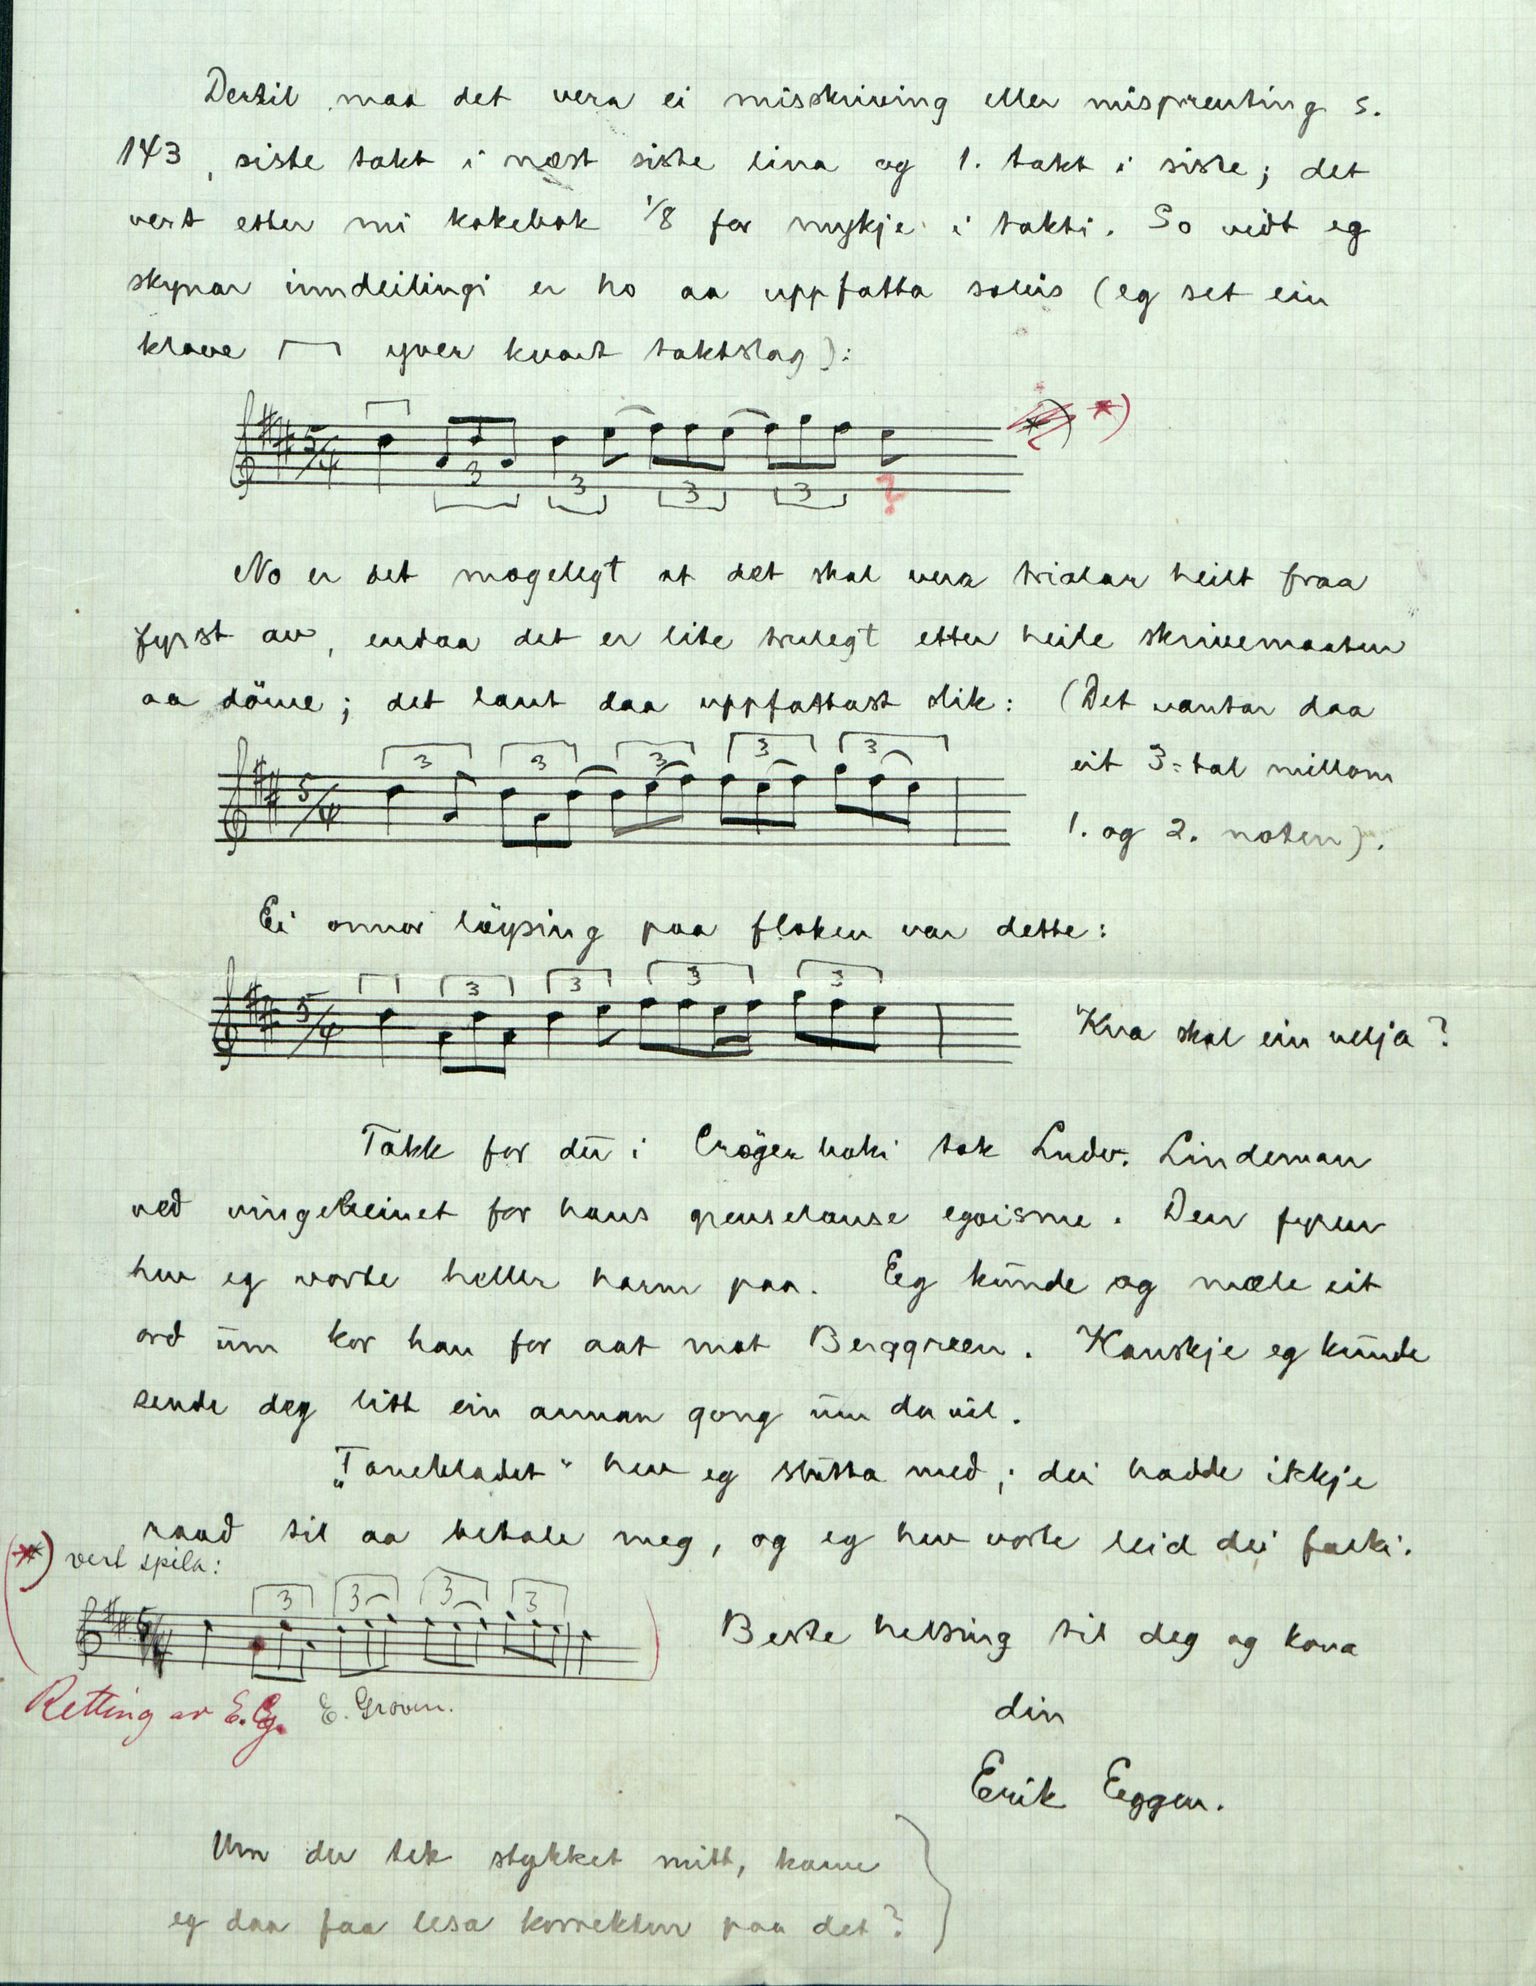 Dertil maa det vera ei misskriving eller misprenting s.
143, siste takt i næst siste lina og 1. takt i siste; det
vert etter mi kokebok 1/8 for mykje i takti. So vidt eg
skynar inndeilingi er ho aa uppfatta soleis (eg set ein
klave ┌─┐ yver kvart taktslag):
5/4 3 3 3 3 ? *) *)
No er det mogelegt at det skal vera triolar heilt fraa
fyrst av, endaa det er lite trulegt etter heile skrivemaaten
aa döme; det laut daa uppfattast slik: (Det vantar daa
eit 3-tal millom
1. og 2. noten).
5/4 3 3 3 3 3
Ei onnor löysing paa floken var dette:
5/4 3 3 3 3 Kva skal ein velja?
Takk for du i Cröger boki tok Ludv. Lindeman
ved vingebeinet for hans grenselause egoisme. Den fyren
hev eg vorte heller harm paa. Eg kunde og mæle eit
ord um kor han for aat mot Berggreen. Kanskje eg kunde
sende deg litt ein annan gong um du vil.
„Tonebladet" hev eg slutta med; dei hadde ikkje
raad til aa betale meg, og eg hev vorte leid dei folki.
*) vert spila:
3 3 3 3
Retting av E.G. E. Groven.
Beste helsing til deg og kona
din
Erik Eggen.
Um du tek stykket mitt, kann
eg daa faa lesa korrektur paa det?